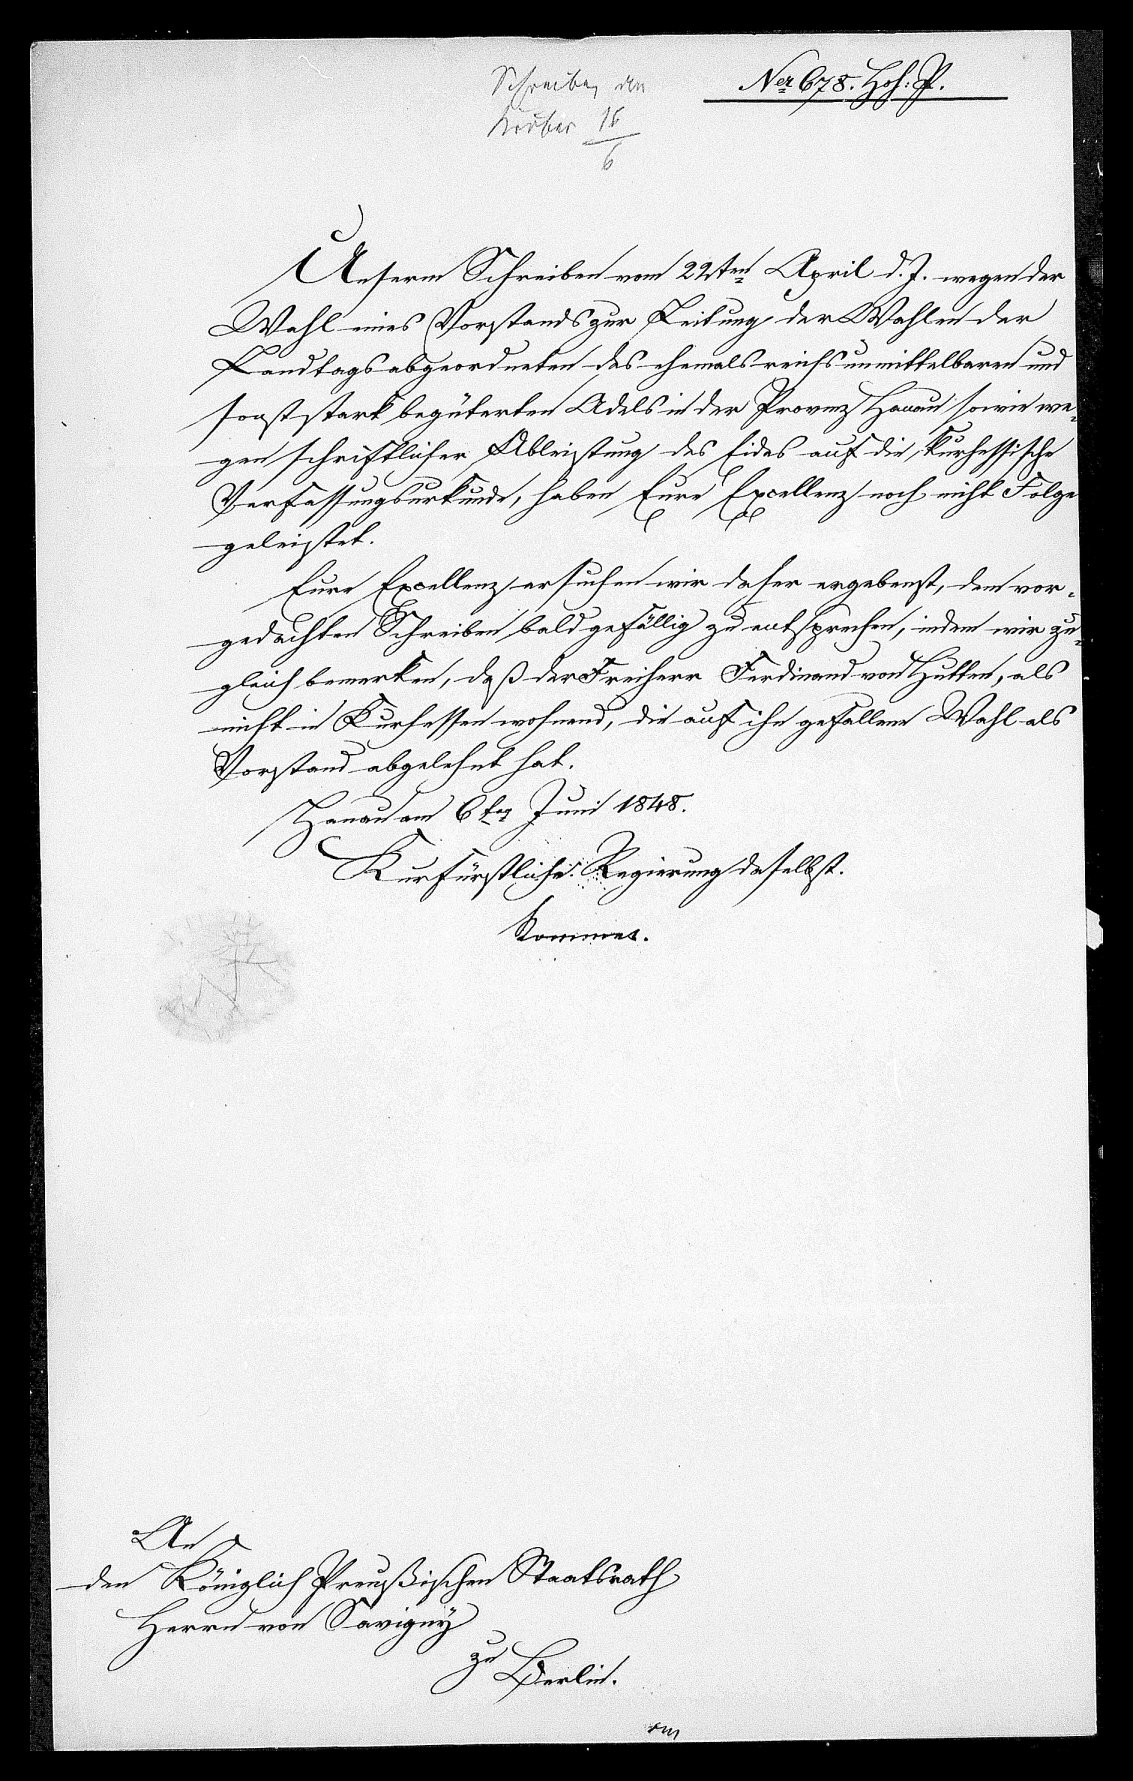 Schreiben den
16
6
Nro 678. Hof: P.
Unserm Schreiben vom 22ten April d. J. wegen der
Wahl eines Vorstands zur Leitung der Wahlen der
Landtagsabgeordneten des ehemals reichsunmittelbaren und
sonst stark begüterten Adels in der Provinz Hanau sowie we-
gen schriftlicher Ableistung des Eides auf die kurhessische
Verfassungsurkunde, haben Eure Excellenz noch nicht Folge
geleistet.
Eure Excellenz ersuchen wir daher ergebenst, dem vor-
gedachten Schreiben bald gefällig zu entsprechen, indem wir zu-
gleich bemerken, daß der Freiherr Ferdinand von Hutten, als
nicht in Kurhessen wohnend, die auf ihn gefallene Wahl als
Vorstand abgelehnt hat.
Hanau am 6ten Juni 1848.
Kurfürstliche Regierung daselbst.
An
den Königlich Preußischen Staatsrath
Herrn von Savigny
zu Berlin.